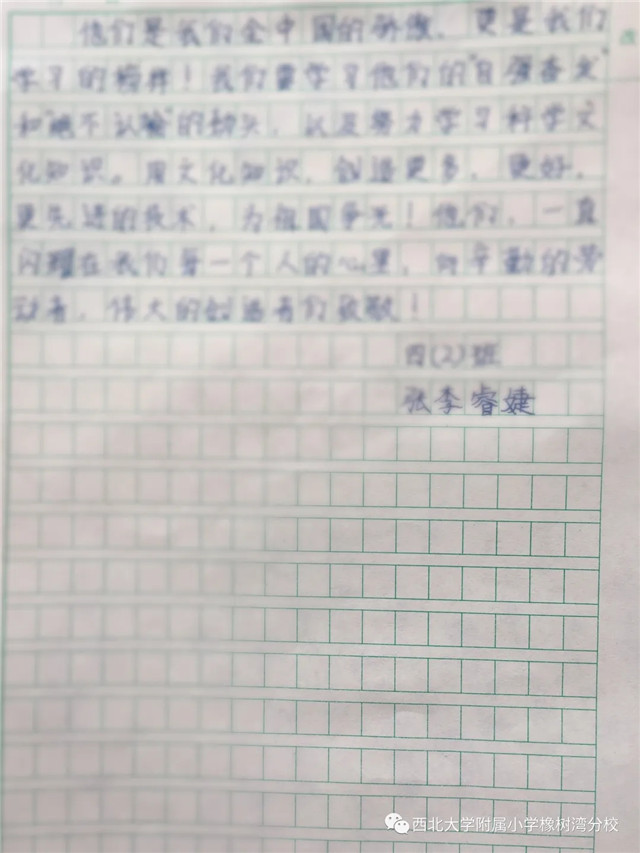 他们是我们全中国的骄傲，更是我们
学习的榜样！我们要学习他们的"自强奋发"
和"绝不认输"的劲头，以及努力学习科学文
化知识。用文化知识，创造更多，更好，
更先进的技术，为祖国争光！他们，一直
闪耀在我们每一个人的心里，向辛勤的劳
动者，伟大的创造者们致敬！
四(2)班
张李睿婕
西北大学附属小学橡树湾分校